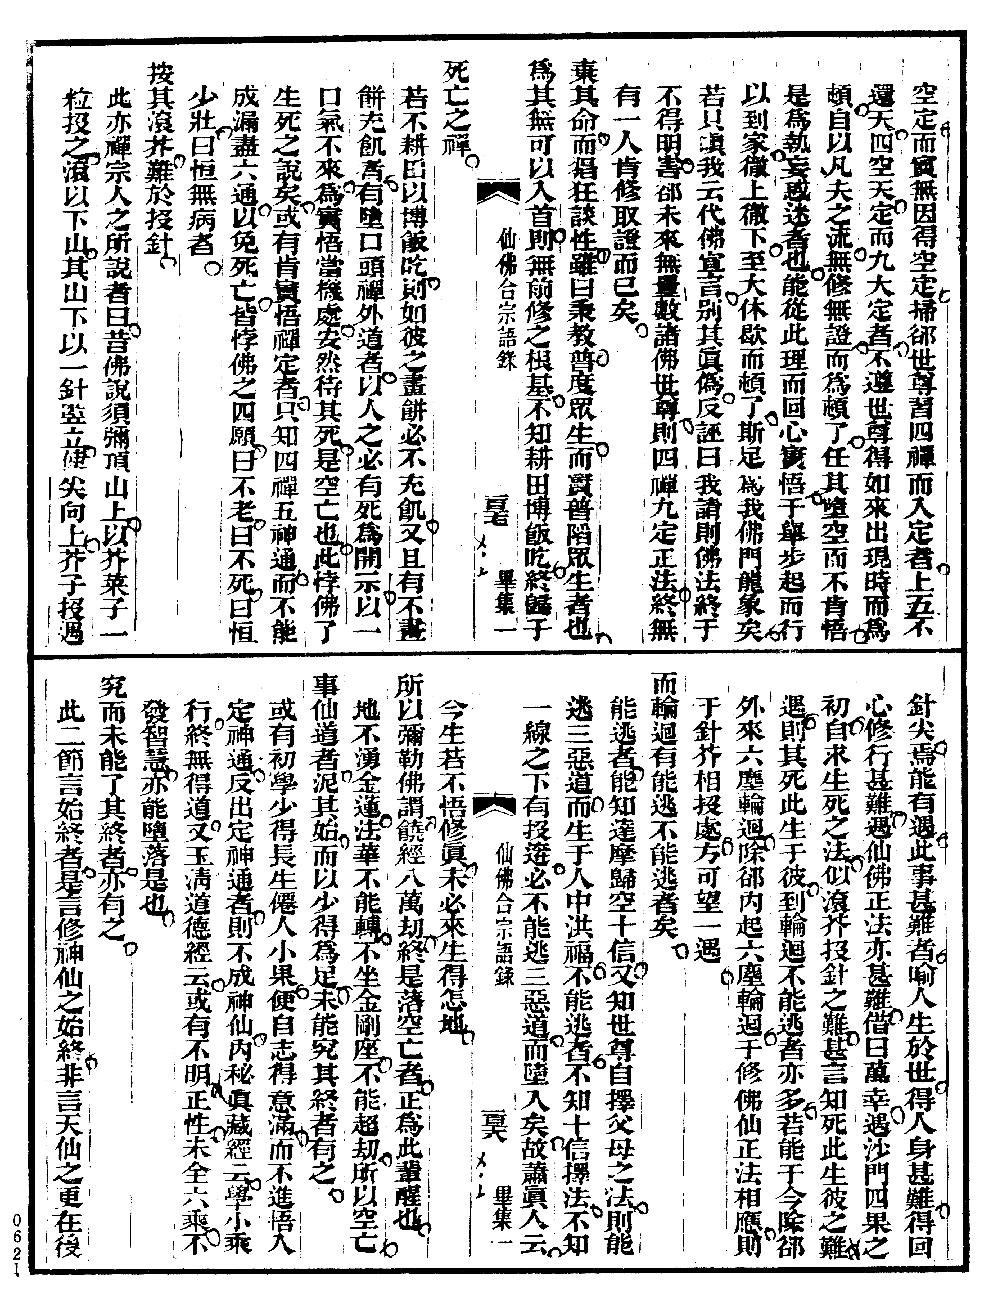 空定而實無因得空定掃卻世尊習四禪而入定者上五不
還天四空天定而九大定者不遵世尊得如來出現時而爲
頓自以凡夫之流無修無證而爲頓了任其墮空而不肯悟
是爲執妄惑迷者也能從此理而回心實悟于舉步起而行
以到家徹上徹下至大休歇而頓了斯足爲我佛門龍象矣
若只頌我云代佛宣言别其眞僞反誣曰我謗則佛法終于
不得明書卻未來無量數諸佛世尊則四禪九定正法終無
有一人肯修取證而已矣
棄其命而倡狂談性雖曰秉教普度眾生而實普陷眾生者也
爲其無可以入首則無前修之根基不知耕田博飯吃終歸于
仙佛合宗語錄
畢集一
死亡之禪
若不耕田以博飯吃則如彼之畫餅必不充飢又且有不畫
餅充飢者有墮口頭禪外道者以人之必有死爲開示以一
口氣不來爲實悟當機處安然待其死是空亡也此悖佛了
生死之說矣或有肯實悟禪定者只知四禪五神通而不能
成漏盡六通以免死亡皆悖佛之四願曰不老曰不死曰恒
少壯曰恒無病者
按其滾芥難於投針
此亦禪宗人之所說者曰昔佛說須彌頂山上以芥菜子一
粒投之滾以下山其山下以一針竖立使尖向上芥子投遇
針尖焉能有遇此事甚難者喻人生於世得人身甚難得回
心修行甚難遇仙佛正法亦甚難借曰萬幸遇沙門四果之
初自求生死之法似滾芥投針之難甚言知死此生彼之難
遇則其死此生于彼到輪迴不能逃者亦多若能于今除卻
外來六塵輪迴除卻內起六塵輪迴于修佛仙正法相應則
于針芥相投處方可望一遇
而輪迴有能逃不能逃者矣
能逃者能知達摩歸空十信又知世尊自擇父母之法則能
逃三惡道而生于人中洪福不能逃者不知十信擇法不知
一線之下有投遊必不能逃三惡道而墮入矣故蕭眞人云
仙佛合宗語錄
畢集一
今生若不悟修眞未必來生得怎地
所以彌勒佛謂饒經八萬劫終是落空亡者正爲此輩醒也
地不湧金蓮法華不能轉不坐金剛座不能超劫所以空亡
事仙道者泥其始而以少得爲足未能究其終者有之
或有初學少得長生僊人小果便自志得意滿而不進悟入
定神通反出定神通者則不成神仙內秘眞藏經云學小乘
行終無得道又玉清道德經云或有不明正性未全六乘不
發智慧亦能墮落是也
究而未能了其終者亦有之
此二節言始終者是言修神仙之始終非言天仙之更在後
0621